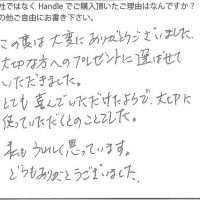 社ではなく Handle でご購入頂いたご理由はなんですか？
の他ご自由にお書き下さい。
この度は大変にありがとうございました。
大切な方へのプレゼントに選ばせて
いただきました。
とても喜んでいただけたようで、大切に
使っていただくとのことでした。
私もうれしく思っています。
どうもありがとうございました。